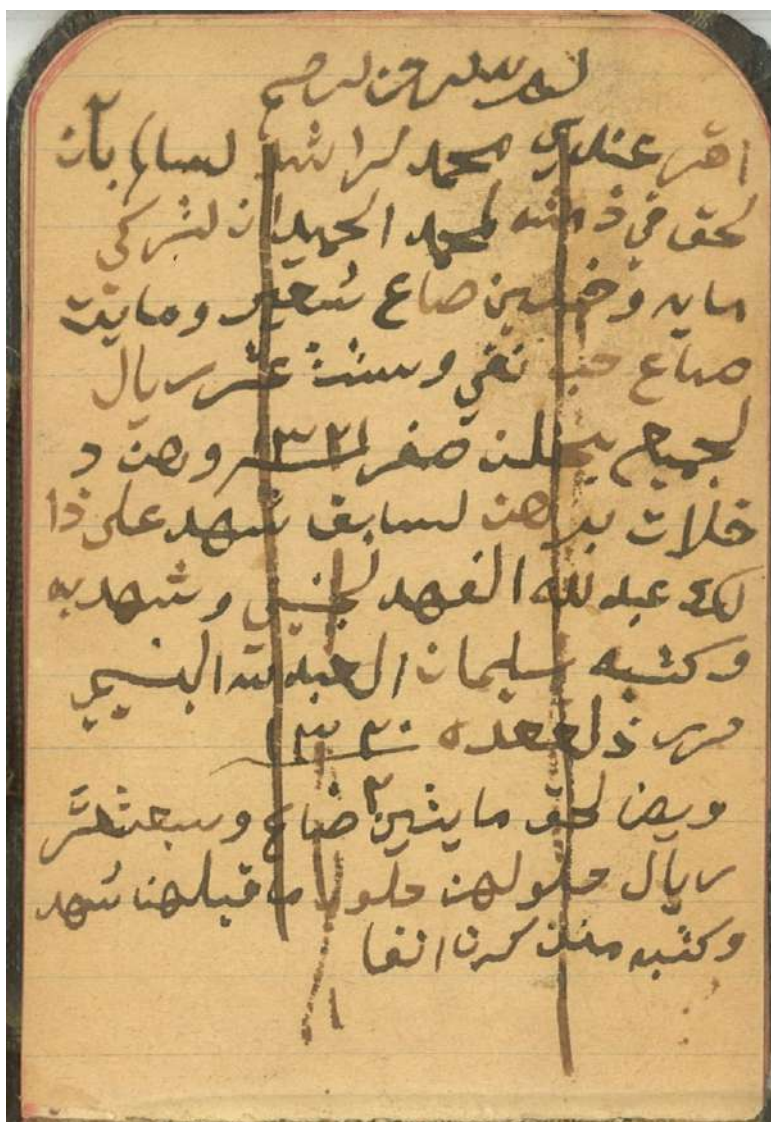 بسم الله الرحمن الرحيم
اقر عندي محمد لراشد لسالم بان
لحق في ذمته لمحمد الحميدان لتركي
مايه وخمسين صاع شعير ومايت
صاع حب نقي وستت عشر ريال
لجميع يحلن صفر ١٣٢١ وهن د
خلات برهن لسابق شهد على ذا
لك عبدلله الفهد وشهد به
وكتبه سليمان العبدلله البسيم
حرر ذلقعده ١٣٢٠
ويضا لحق مايتين صاع وسبعتعشر
ريال حلولهن حلول ماقبلهن شهد
وكتبه من ذكرنا انفا